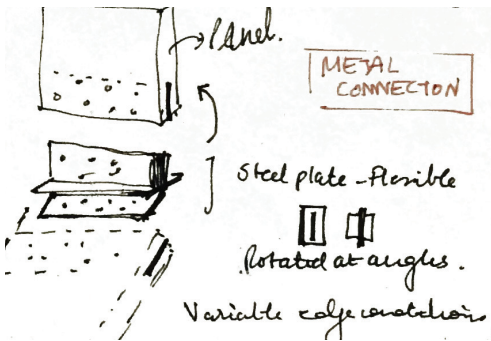 Panel.
METAL
CONNECTON
Steel plate - flexible
Rotated at angles.
Variable edge conditions